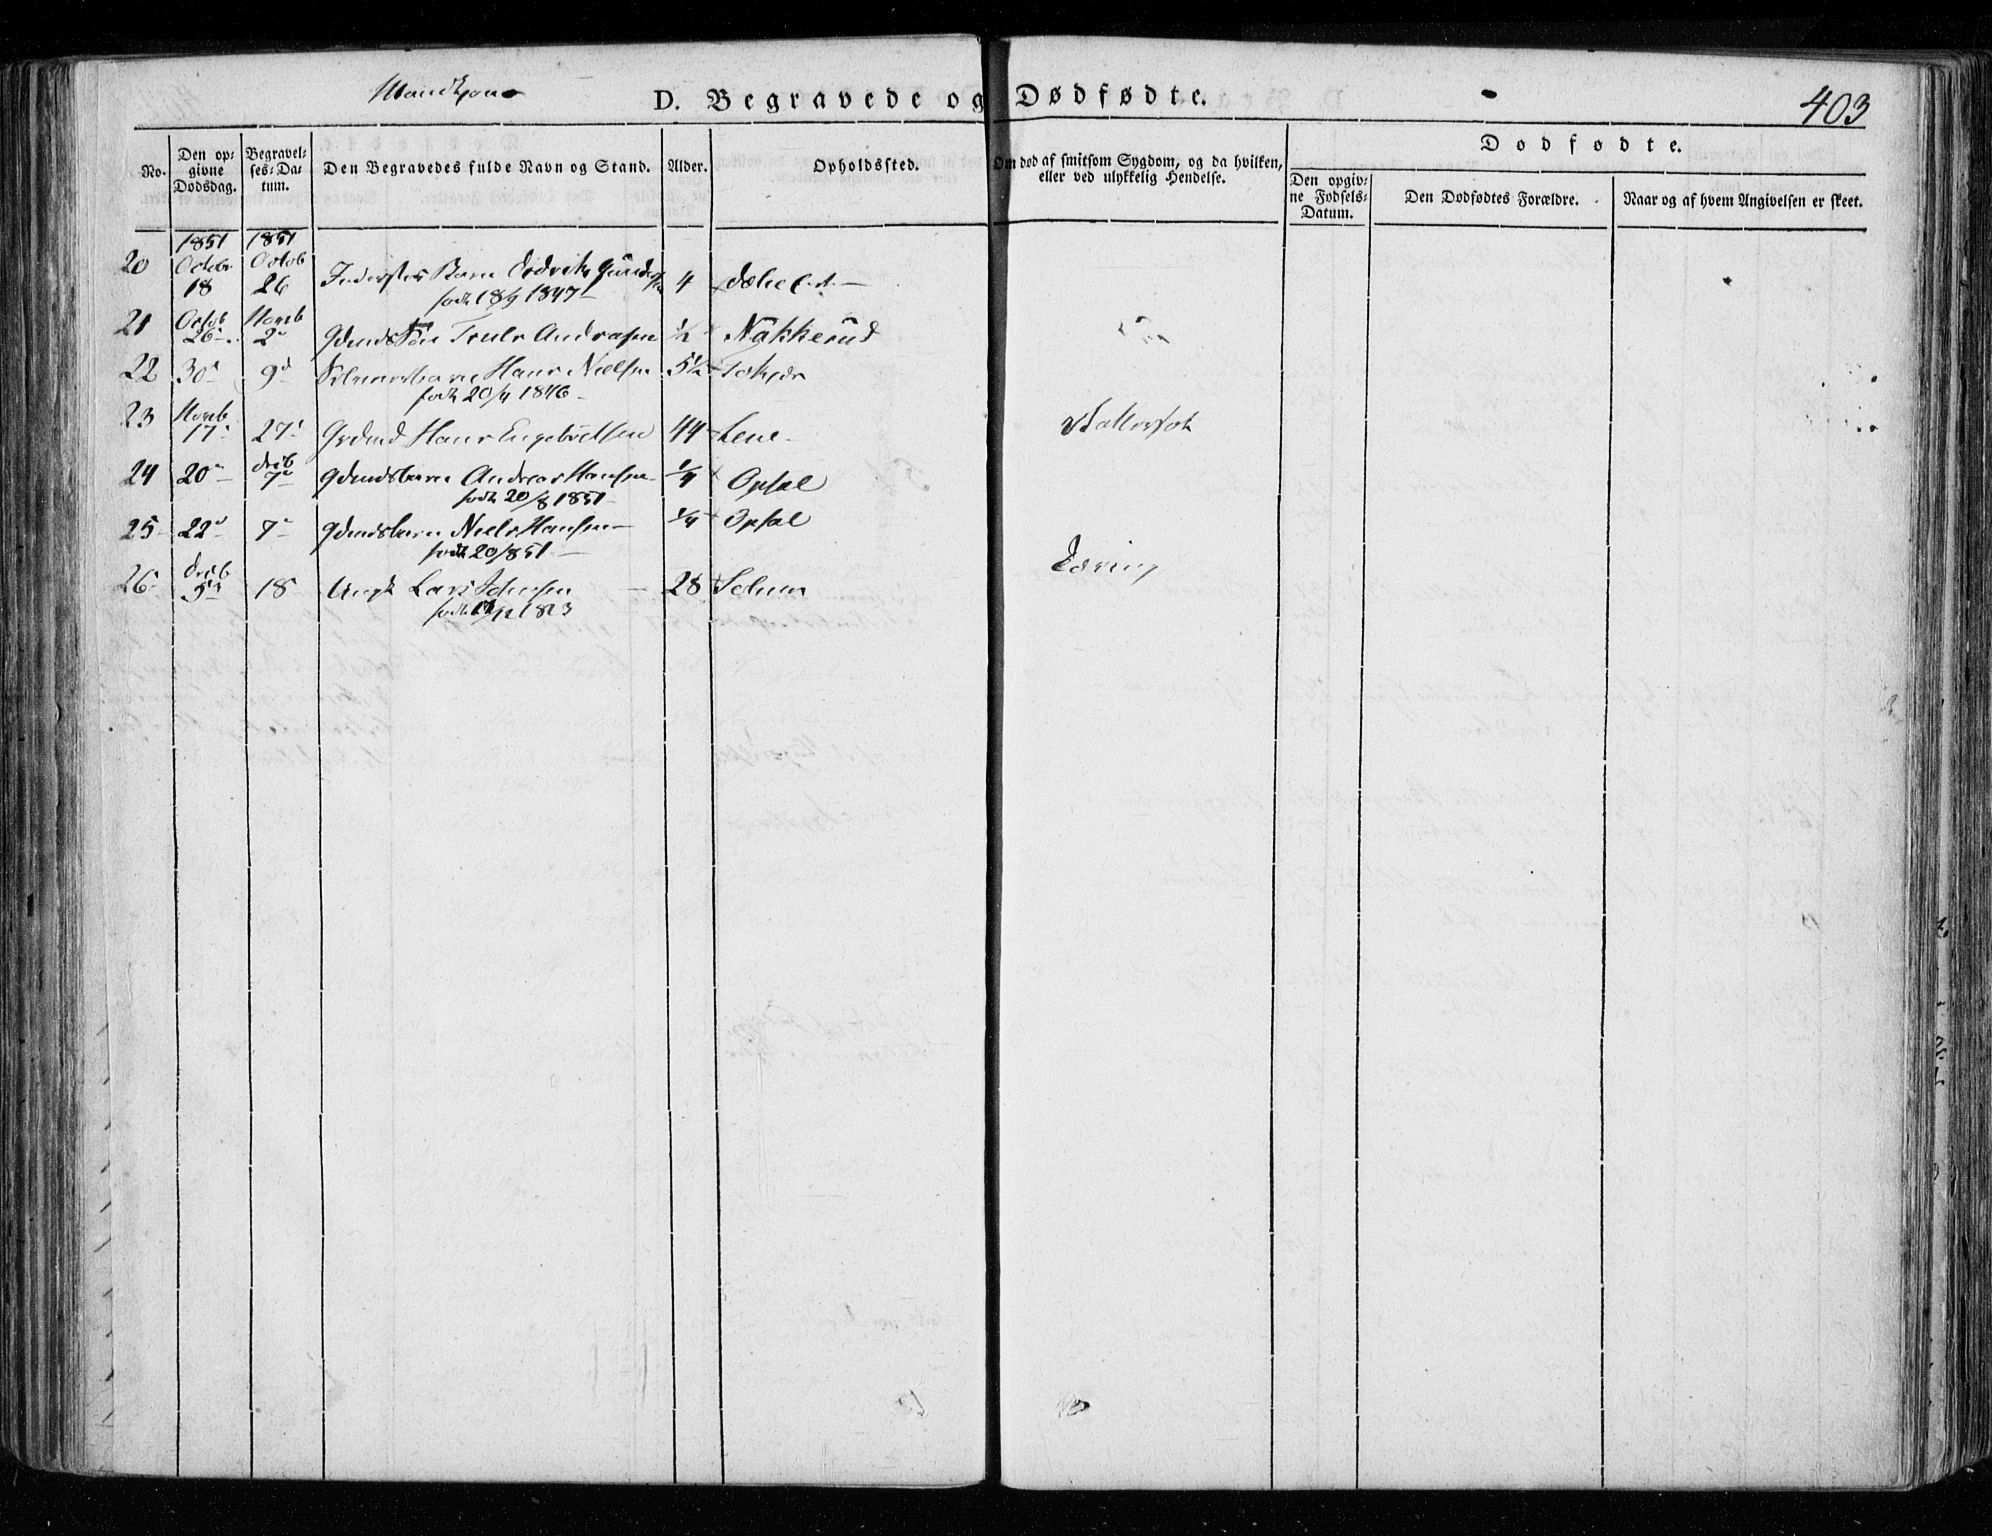 Mandkjøn
D. Begravede og Dødfødte.
403
No.
Den op-
givne
Dødsdag.
Begravel-
ses-Da-
tum.
Den Begravedes fulde Navn og Stand.
Alder.
Opholdssted.
Om død af smitsom Sygdom, og da hvilken,
eller ved ulykkelig Hendelse.
Dødfødte.
Den opgiv-
ne Fødsels-
Datum.
Den Dødfødtes Forældre.
Naar og af hvem Angivelsen er skeet.
1851 1851
20 Octobr 18 Octob 26 Inderstes Barn 4
født 18/9 1847
21 Octob 26 Novb 2 Gdmds Søn Truls Andrasen 1/2 Nakkerud
22 30 9 Hans Nielsen 5 1/2
født 20/4 1846
23 Novb 17 27 Grdmd Hans Engebretsen 44 Lene
24 20 Decb 7 Gdmdsbarn Andreas Hansen 1/4 Opsal
født 20/8 1851
25 22 7 Gdmdsbarn Niels Hansen 1/4 Opsal
født 20/8 51
26 Decb 5 18 Ungk Lars Johnsen 28 Solum
født 1823
Vattersot
Tæring